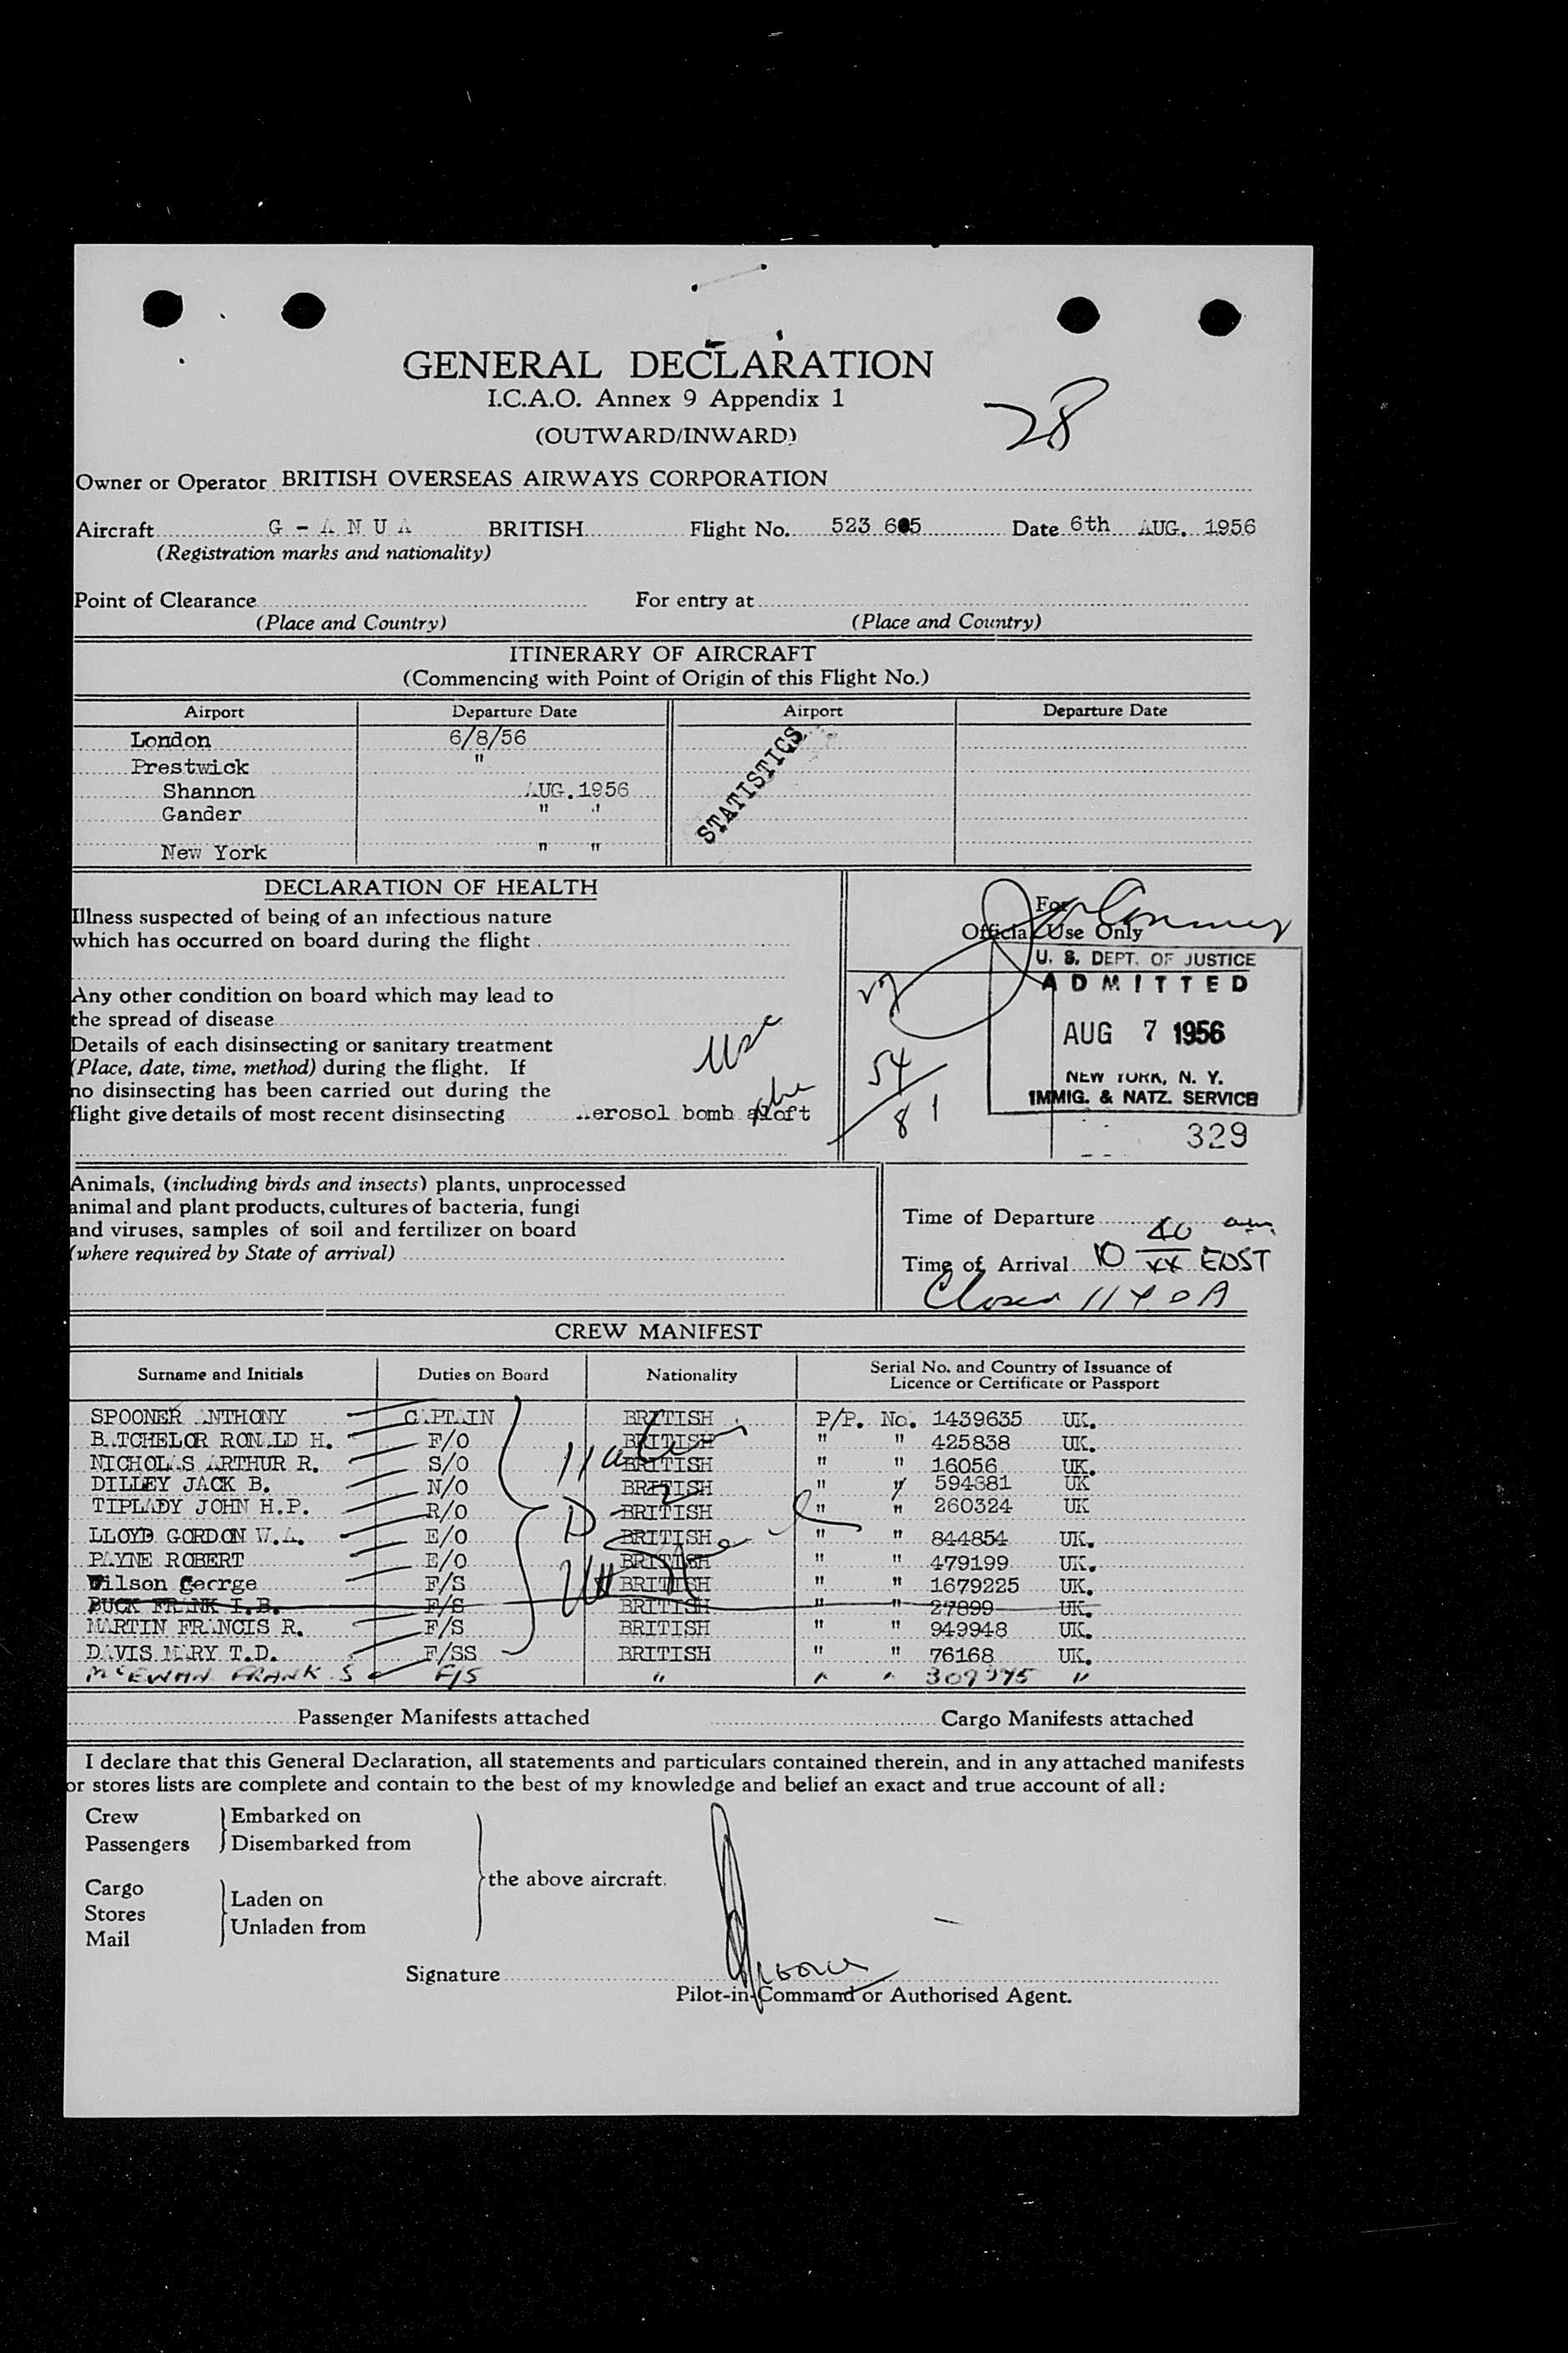 GENERAL DECLARATION
I.C.A.O. Annex 9 Appendix 1
28
(OUTWARD/INWARD)
Owner or Operator BRITISH OVERSEAS AIRWAYS CORPORATION
Aircraft G - A N U A BRITISH Flight No. 523 605 Date 6th AUG. 1956
(Registration marks and nationality)
Point of Clearance For entry at
(Place and Country) (Place and Country)
ITINERARY OF AIRCRAFT
(Commencing with Point of Origin of this Flight No.)
Airport Departure Date Airport Departure Date
London 6/8/56
Prestwick "
Shannon AUG. 1956
Gander " "
New York " "
STATISTICS
DECLARATION OF HEALTH
Illness suspected of being of an infectious nature
which has occurred on board during the flight
Any other condition on board which may lead to
the spread of disease
Details of each disinsecting or sanitary treatment
(Place, date, time, method) during the flight. If
no disinsecting has been carried out during the
flight give details of most recent disinsecting Aerosol bomb aloft
For
Official Use Only
U. S. DEPT. OF JUSTICE
ADMITTED
AUG 7 1956
NEW YORK, N. Y.
IMMIG. & NATZ. SERVICE
329
54
81
Animals, (including birds and insects) plants, unprocessed
animal and plant products, cultures of bacteria, fungi
and viruses, samples of soil and fertilizer on board
(where required by State of arrival)
Time of Departure
Time of Arrival 10 40 am EDST
Closed 1140A
CREW MANIFEST
Surname and Initials Duties on Board Nationality Serial No. and Country of Issuance of Licence or Certificate or Passport
SPOONER ANTHONY CAPTAIN BRITISH P/P. No. 1439635 UK.
BATCHELOR RONALD H. F/O BRITISH " " 425838 UK.
NICHOLAS ARTHUR R. S/O BRITISH " " 16056 UK.
DILLEY JACK B. N/O BRITISH " " 594681 UK
TIPLADY JOHN H.P. R/O BRITISH " " 260324 UK
LLOYD GORDON W.A. E/O BRITISH " " 844854 UK.
PAYNE ROBERT E/O BRITISH " " 479199 UK.
Wilson George F/S BRITISH " " 1679225 UK.
BUCK FRANK I.B. F/S BRITISH " " 27899 UK.
MARTIN FRANCIS R. F/S BRITISH " " 949948 UK.
DAVIS MARY T.D. F/SS BRITISH " " 76168 UK.
McEWAN FRANK S F/S " " " 309395 "
Passenger Manifests attached Cargo Manifests attached
I declare that this General Declaration, all statements and particulars contained therein, and in any attached manifests
or stores lists are complete and contain to the best of my knowledge and belief an exact and true account of all:
Crew Embarked on
Passengers Disembarked from
the above aircraft.
Cargo
Stores Laden on
Mail Unladen from
Signature
Pilot-in-Command or Authorised Agent.